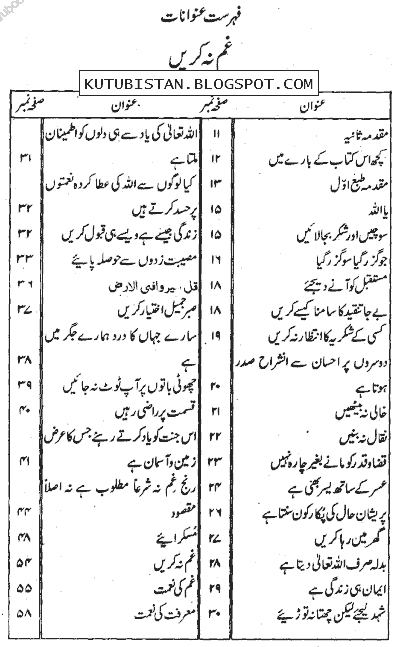 فہرست عنوانات
غم نہ کریں
KUTUBISTAN.BLOGSPOT.COM
عنوان صفحہ نمبر
مقدمہ ثانیہ ۱۱
کچھ اس کتاب کے بارے میں ۱۲
مقدمہ طبع اوّل ۱۳
یا اللہ ۱۵
سوچیں اور شکر بجا لائیں ۱۵
جو گزر گیا سو گزر گیا ۱۶
مستقبل کو آنے دیجئے ۱۸
بے جا تنقید کا سامنا کیسے کریں ۱۸
کسی کے شکریہ کا انتظار نہ کریں ۱۹
دوسروں پر احسان سے انشراح صدر
ہوتا ہے ۲۰
خالی نہ بیٹھیں ۲۱
نقال نہ بنیں ۲۲
قضا و قدر کو مانے بغیر چارہ نہیں ۲۳
عسر کے ساتھ یسر بھی ہے ۲۴
پریشان حال کی پکار کون سنتا ہے ۲۶
گھر میں رہا کریں ۲۷
بدلہ صرف اللہ تعالیٰ دیتا ہے ۲۸
ایمان ہی زندگی ہے ۲۹
شہد لیجئے لیکن چھتا نہ توڑیئے ۳۰
عنوان صفحہ نمبر
اللہ تعالیٰ کی یاد سے ہی دلوں کو اطمینان
ملتا ہے ۳۱
کیا لوگوں سے اللہ کی عطا کردہ نعمتوں
پر حسد کرتے ہیں ۳۲
زندگی جیسے ہے ویسے ہی قبول کریں ۳۲
مصیبت زدوں سے حوصلہ پایئے ۳۳
قل سیروا فی الارض ۳۶
صبر جمیل اختیار کریں ۳۷
سارے جہاں کا درد ہمارے جگر میں
ہے ۳۸
چھوٹی باتوں پر آپ ٹوٹ نہ جائیں ۳۹
قسمت پر راضی رہیں ۴۰
اس جنت کو یاد کرتے رہئے جس کا عرض
زمین و آسمان ہے ۴۱
رنج و غم نہ شرعاً مطلوب ہے نہ اصلاً
مقصود ۴۴
مسکرایئے ۴۸
غم نہ کریں ۵۴
غم کی نعمت ۵۵
معرفت کی نعمت ۵۸